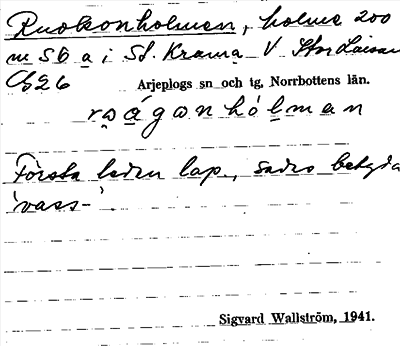 Ruokonholmen, holme 200
m SO a i St. Krama V Stor Laisan
C626 Arjeplogs sn och tg, Norrbottens län.
roágonhólman
Första leden lap., sades betyda
'vass-'
Sigvard Wallström, 1941.